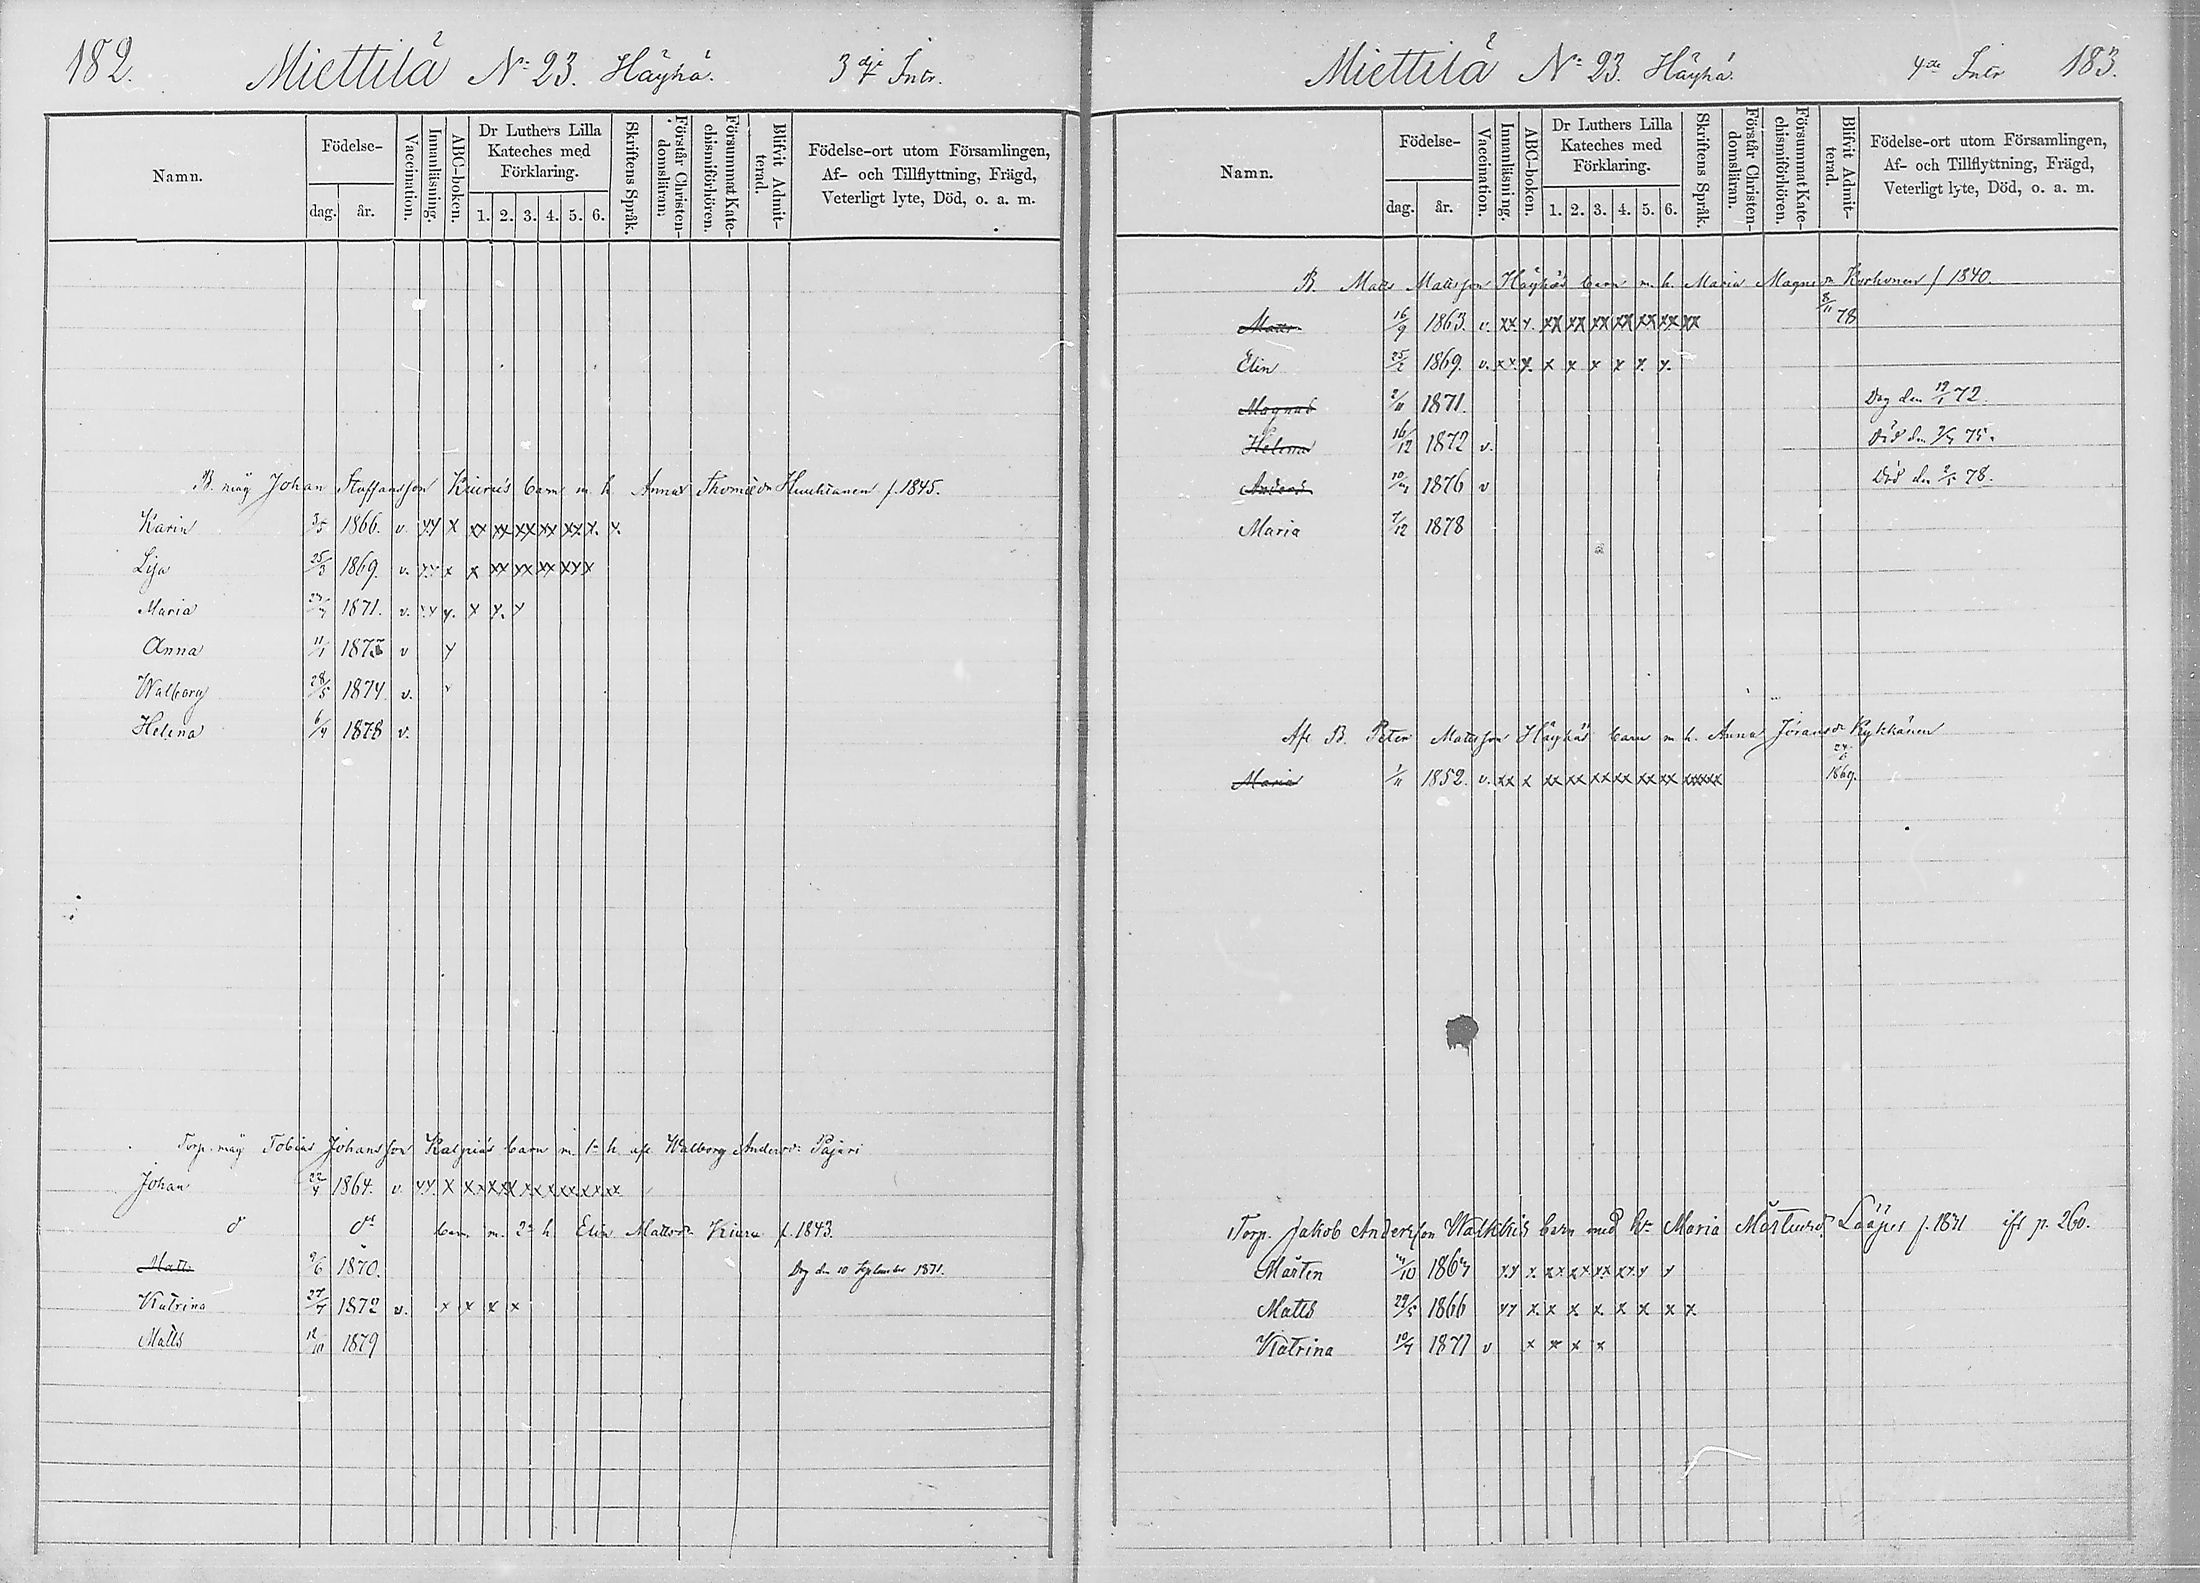 182. Miettilä No 23. Häyhä. 3dje Intr.
Namn. Födelse- dag. år. Vaccination. Innanläsning. ABC-boken. Dr Luthers Lilla Kateches med Förklaring. 1. 2. 3. 4. 5. 6. Skriftens Språk. Förstår Christen-domsläran. Försummat Kate-chismiförhören. Blifvit Admit-terad. Födelse-ort utom Församlingen, Af- och Tillflyttning, Frägd, Veterligt lyte, Död, o. a. m.
B. måg Johan Staffansson Kiuru's barn m. h. Anna Thomædr f. 1845.
Karin 3/5 1866. v. xx x xx xx xx xx xx x. x.
Lisa 25/3 1869. v. xx x x xx xx xx xx x
Maria 1871. v. xx x. x x. x
Anna 11/1 1873 v x
Walborg 28/5 1874 v.
Helena 6/4 1878 v.
Torp. måg Tobias Johansson Kalpia's barn m. 1a h. afl. Walborg Andersdr Pajari
Johan 22/4 1864. v. xx x
barn m. 2a h. Elin Mattsdr Kiuru f. 1843.
Matts 9/6 1870. Dog den 10 September 1871.
Katrina 27/7 1872 v. x x x x
Matts 12/10 1879
Miettilä No 23. Häyhä. 4de Intr 183.
Namn. Födelse- dag. år. Vaccination. Innanläsning. ABC-boken. Dr Luthers Lilla Kateches med Förklaring. 1. 2. 3. 4. 5. 6. Skriftens Språk. Förstår Christen-domsläran. Försummat Kate-chismiförhören. Blifvit Admit-terad. Födelse-ort utom Församlingen, Af- och Tillflyttning, Frägd, Veterligt lyte, Död, o. a. m.
B. Matts Mattsson Häyhä's barn m. h. Maria Magnidr Korhonen f 1840.
Matts 16/9 1863. v. xx x. xx xx xx xx xx xx xx 8/11 78
Elin 1869. v. xx x. x x x x x. x.
Magnus 2/11 1871. Dog den 19/1 72.
Helena 16/12 1872 v. Död den 75.
Anders 1876 v Död den 78.
Maria 7/12 1878
Afl. B. Peter Mattsson Häyhä's barn m. h. Anna Göransdr Kykkänen
Maria 1/11 1852. v. xx x xx xx xx xx xx xx 24/6 1869.
Torp. Jakob Andersson barn med h. Maria Mårtensd. Lääperi ift p. 260.
Mårten 1864 xx x.
Matts 29/5 1866 xx x. x x x x x x x
Katrina 10/7 1871 v x x x x